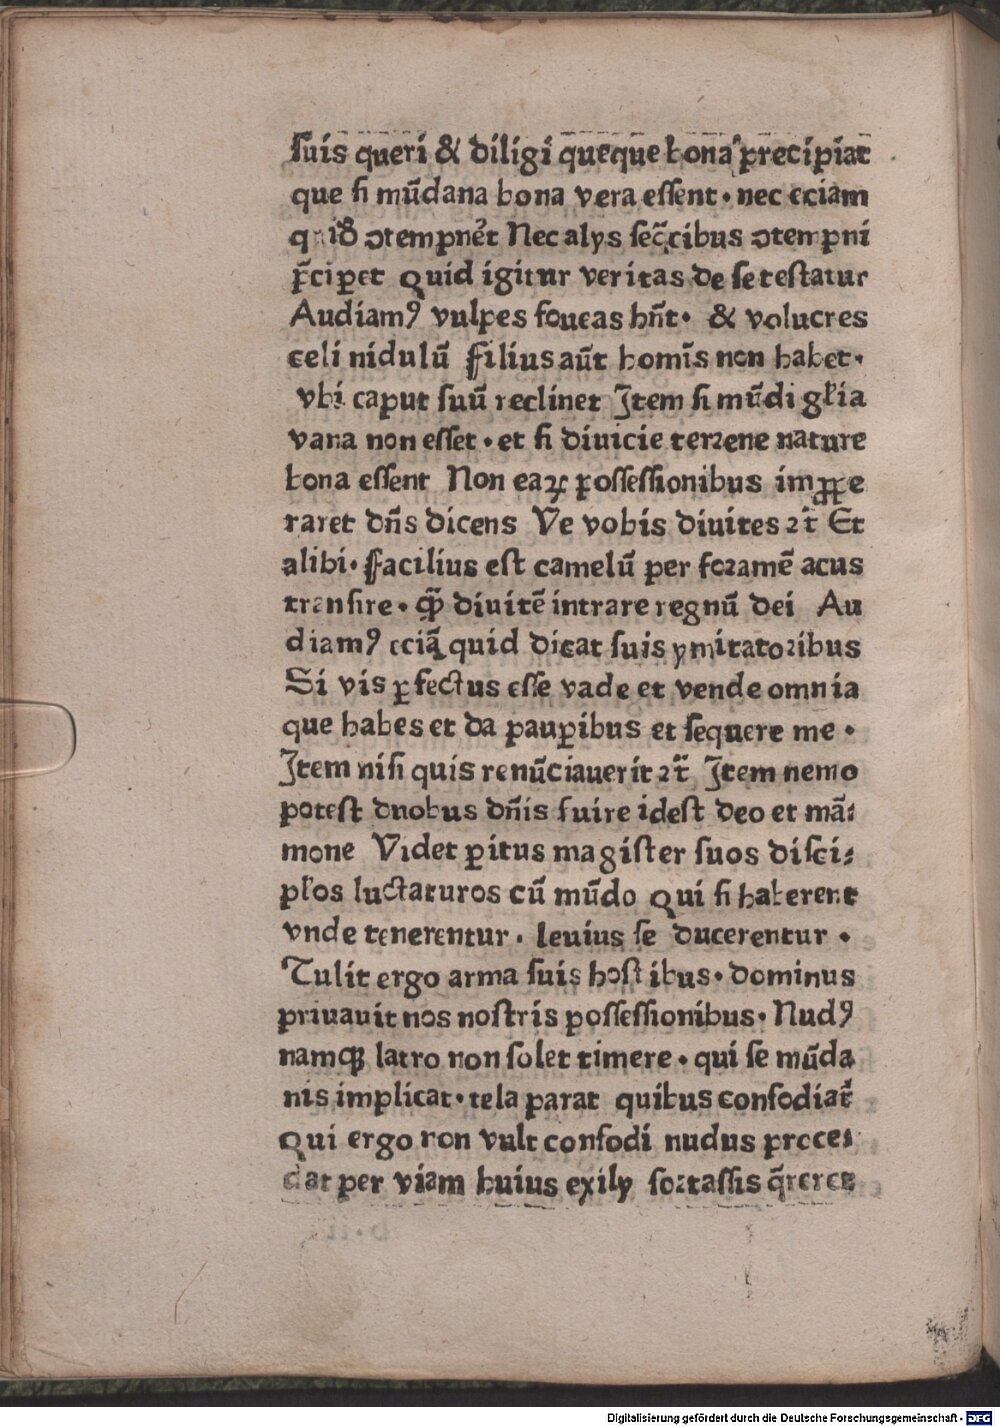 suis queri & diligi queque bona precipiat
que si mūdana bona vera essent · nec eciam
ↄtempneret Nec alys sectibus ↄtempni
p̄cip̱et Quid igitur veritas de se testatur
Audiamꝰ vulpes foueas hn̄t · & volucres
celi nidulū filius aūt homīs non habet ·
vbi caput suū reclinet Item si mūdi gl̄ia
vana non esset · et si diuicie terrene nature
bona essent Non eaꝝ possessionibus imꝓpe
raret dn̄s dicens Ve vobis diuites ⁊c̄ Et
alibi · facilius est camelū per foramē acus
transire · qꝫ diuitē intrare regnū dei Au
diamꝰ eciā quid dicat suis ymitatoribus
Si vis ꝑfectus esse vade et vende omnia
que habes et da pauꝑibus et sequere me ·
Item nisi quis renūciauerit ⁊c̄ Item nemo
potest duobus dn̄is suire idest deo et mā⸗
mone Videt ꝑitus magister suos disci⸗
pl̄os luctaturos cū mūdo Qui si haberent
vnde tenerentur · leuius se ducerentur ·
Tulit ergo arma suis hostibus · dominus
priuauit nos nostris possessionibus · Nudꝰ
namqꝫ latro non solet timere · qui se mūda
nis implicat · tela parat quibus confodiat̄
Qui ergo non vult confodi nudus proce⸗
dat per viam huius exily fortassis q̄reres
Digitalisierung gefördert durch die Deutsche Forschungsgemeinschaft - DFG